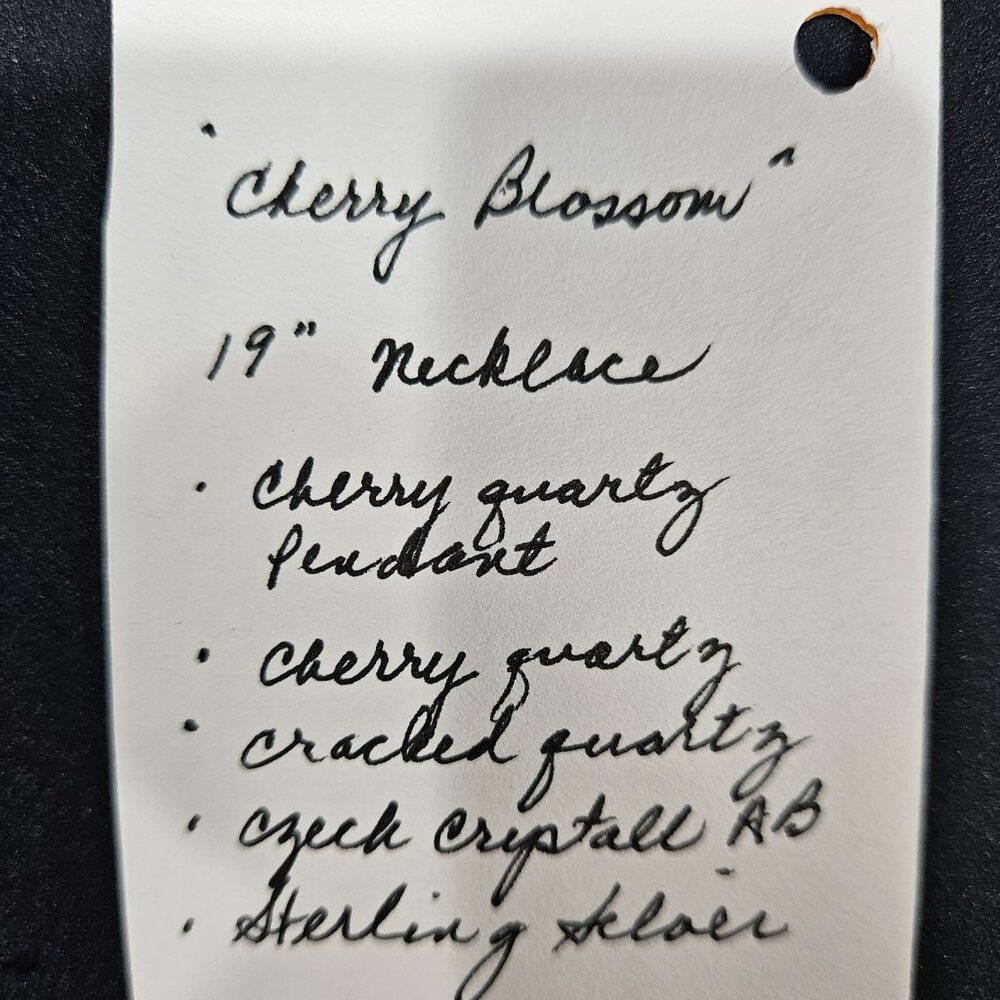 "Cherry Blossom"
19" Necklace
· Cherry quartz
Pendant
· Cherry quartz
· cracked quartz
· Czech Crystall AB
· Sterling Silver